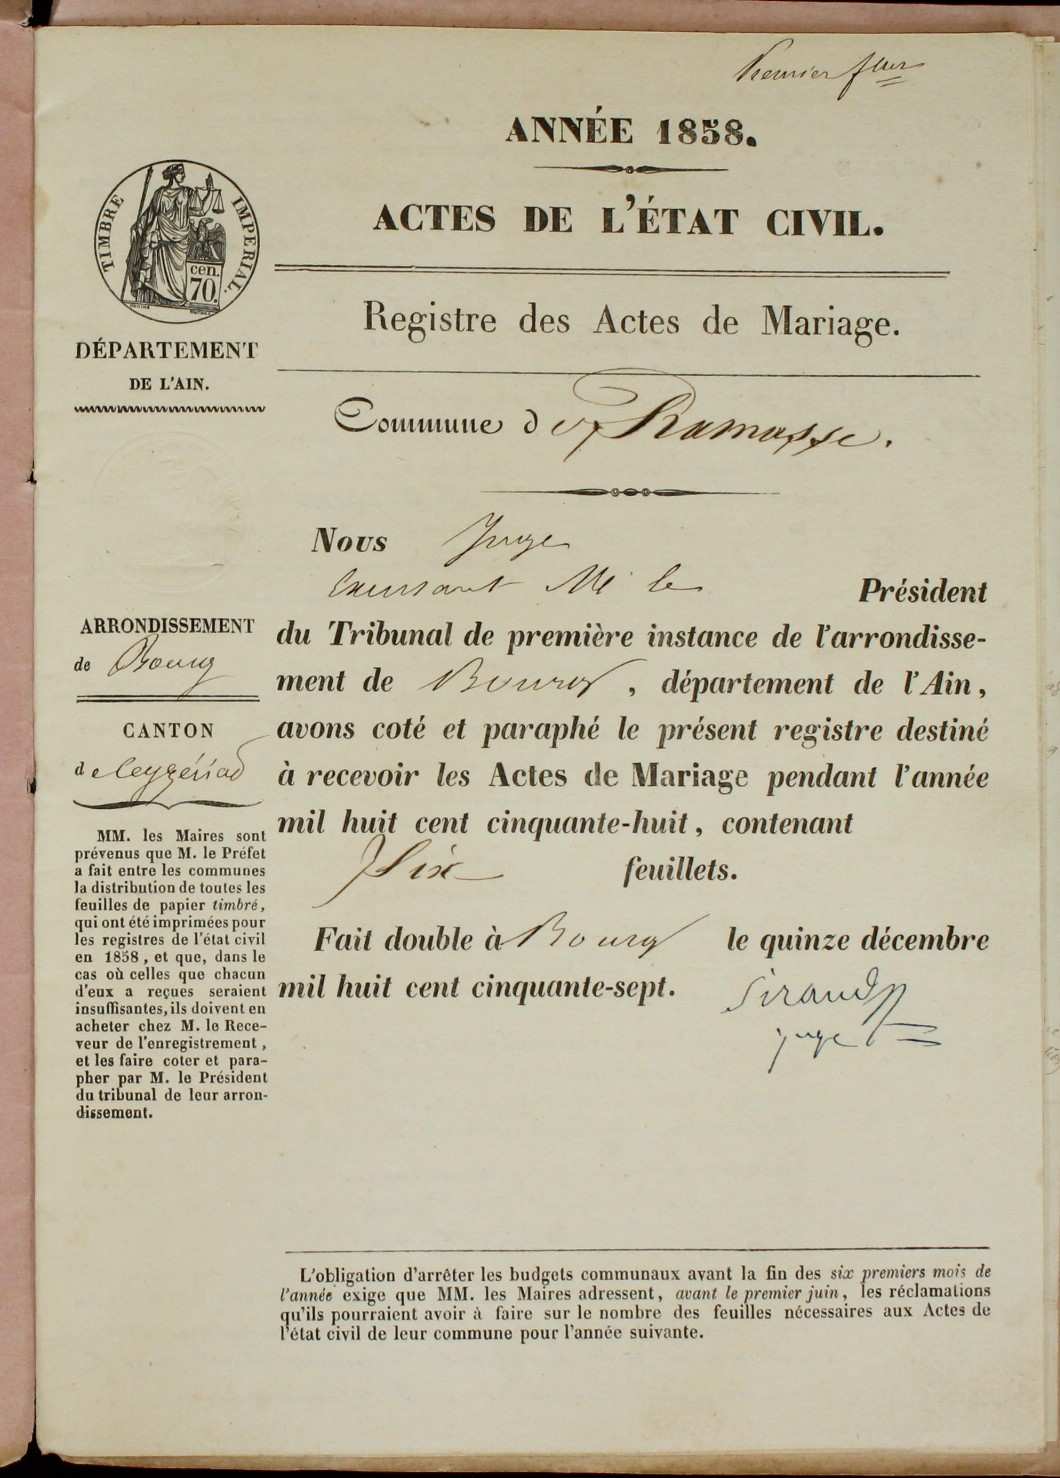 Premier
ANNÉE 1858.
ACTES DE L'ÉTAT CIVIL.
TIMBRE IMPERIAL.
cen.
70.
Registre des Actes de Mariage.
DÉPARTEMENT
DE L'AIN.
Commune de Ramasse.
Nous Juge
Mr le Président
du Tribunal de première instance de l'arrondisse-
ment de Bourg, département de l'Ain,
avons coté et paraphé le présent registre destiné
à recevoir les Actes de Mariage pendant l'année
mil huit cent cinquante-huit, contenant
Six feuillets.
Fait double à Bourg le quinze décembre
mil huit cent cinquante-sept.
Sirand
juge
ARRONDISSEMENT
de Bourg
CANTON
de Ceyzériat
MM. les Maires sont
prévenus que M. le Préfet
a fait entre les communes
la distribution de toutes les
feuilles de papier timbré,
qui ont été imprimées pour
les registres de l'état civil
en 1858, et que, dans le
cas où celles que chacun
d'eux a reçues seraient
insuffisantes, ils doivent en
acheter chez M. le Rece-
veur de l'enregistrement,
et les faire coter et para-
pher par M. le Président
du tribunal de leur arron-
dissement.
L'obligation d'arrêter les budgets communaux avant la fin des six premiers mois de
l'année exige que MM. les Maires adressent, avant le premier juin, les réclamations
qu'ils pourraient avoir à faire sur le nombre des feuilles nécessaires aux Actes de
l'état civil de leur commune pour l'année suivante.